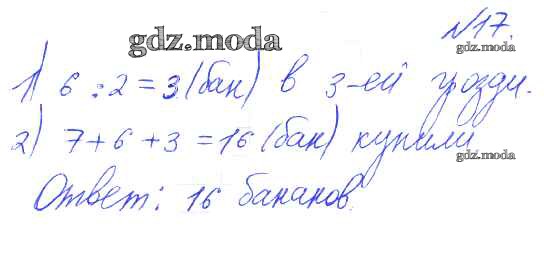 №17.
gdz.moda
gdz.moda
1) 6 : 2 = 3 (бан) в 3-ей грозди.
2) 7 + 6 + 3 = 16 (бан) купили
gdz.moda
Ответ: 16 бананов.